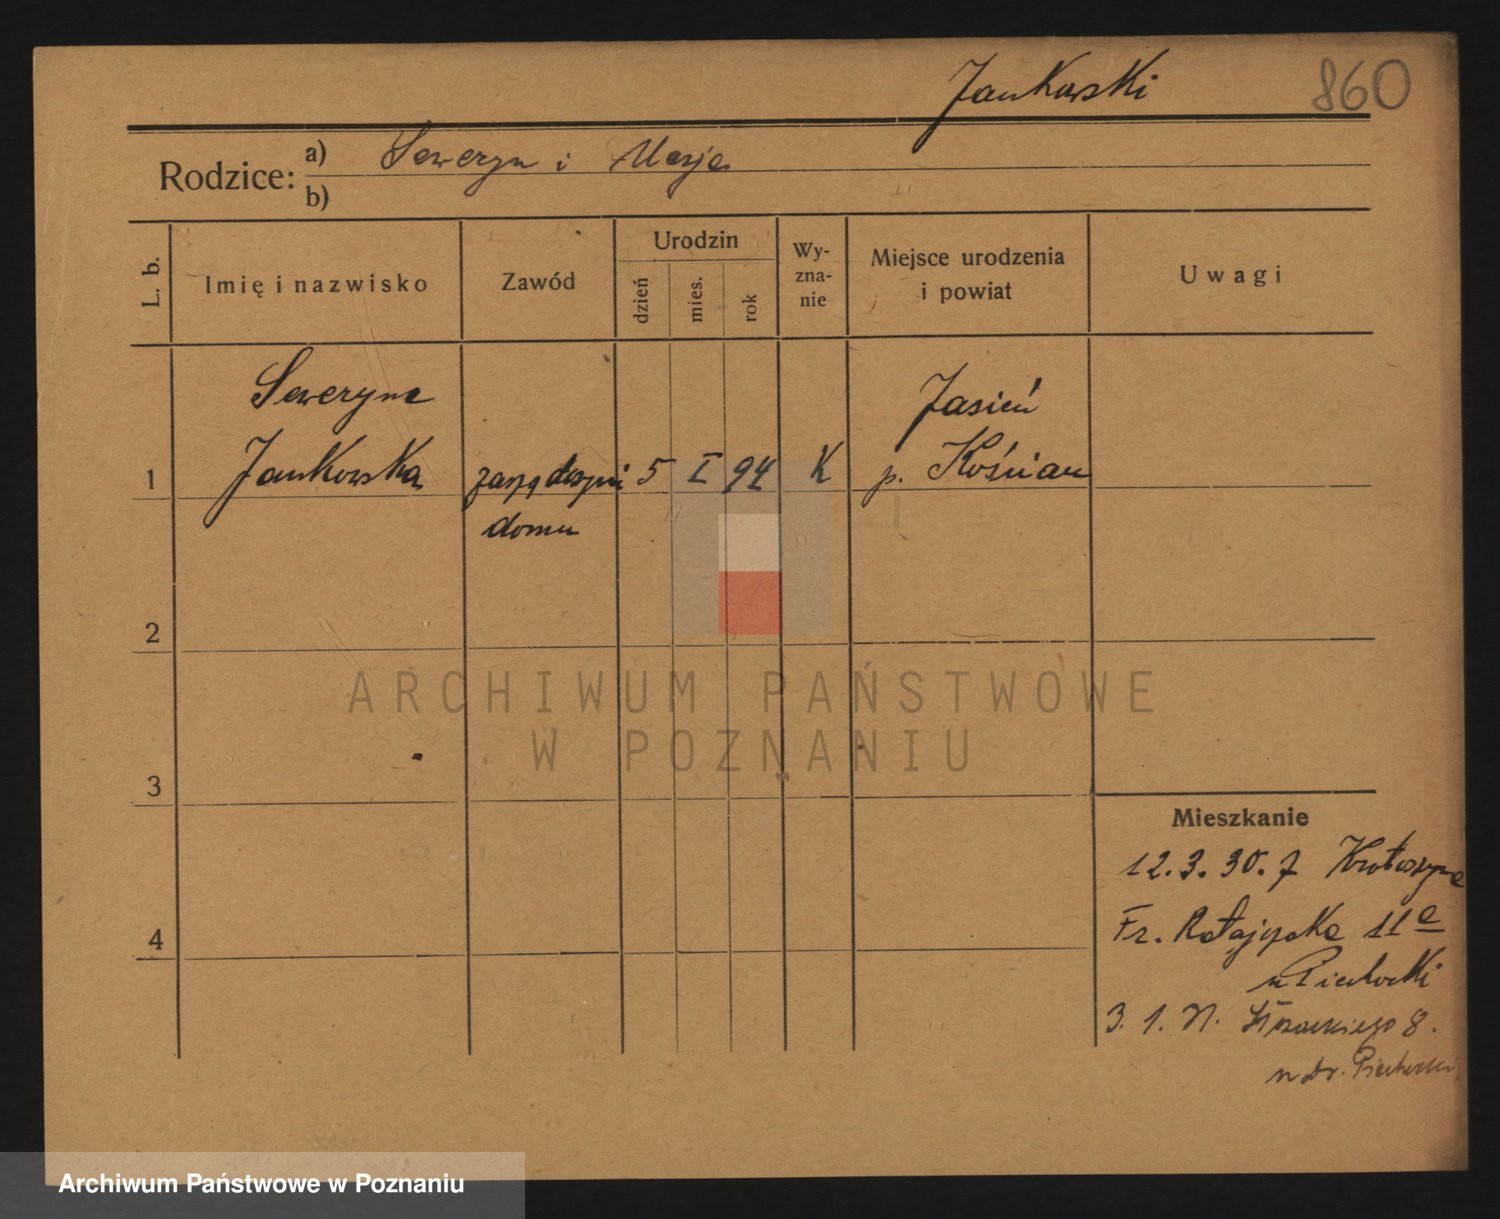 Jankowski
860
Rodzice:
a) Seweryn i Marja
b)
L. b.
Imię i nazwisko
Zawód
Urodzin
dzień
mies.
rok
Wy-
zna-
nie
Miejsce urodzenia
i powiat
Uwagi
Seweryna
Jasień
1 Jankowska 5 I 94 K p. Kościan
domu
2
ARCHIWUM PAŃSTWOWE
W POZNANIU
3
Mieszkanie
12.3.30. z Krotoszyna
4
Fr. Ratajczaka 11a
u Piechocki
3. 1. 8.
u dr. Piechocki
Archiwum Państwowe w Poznaniu